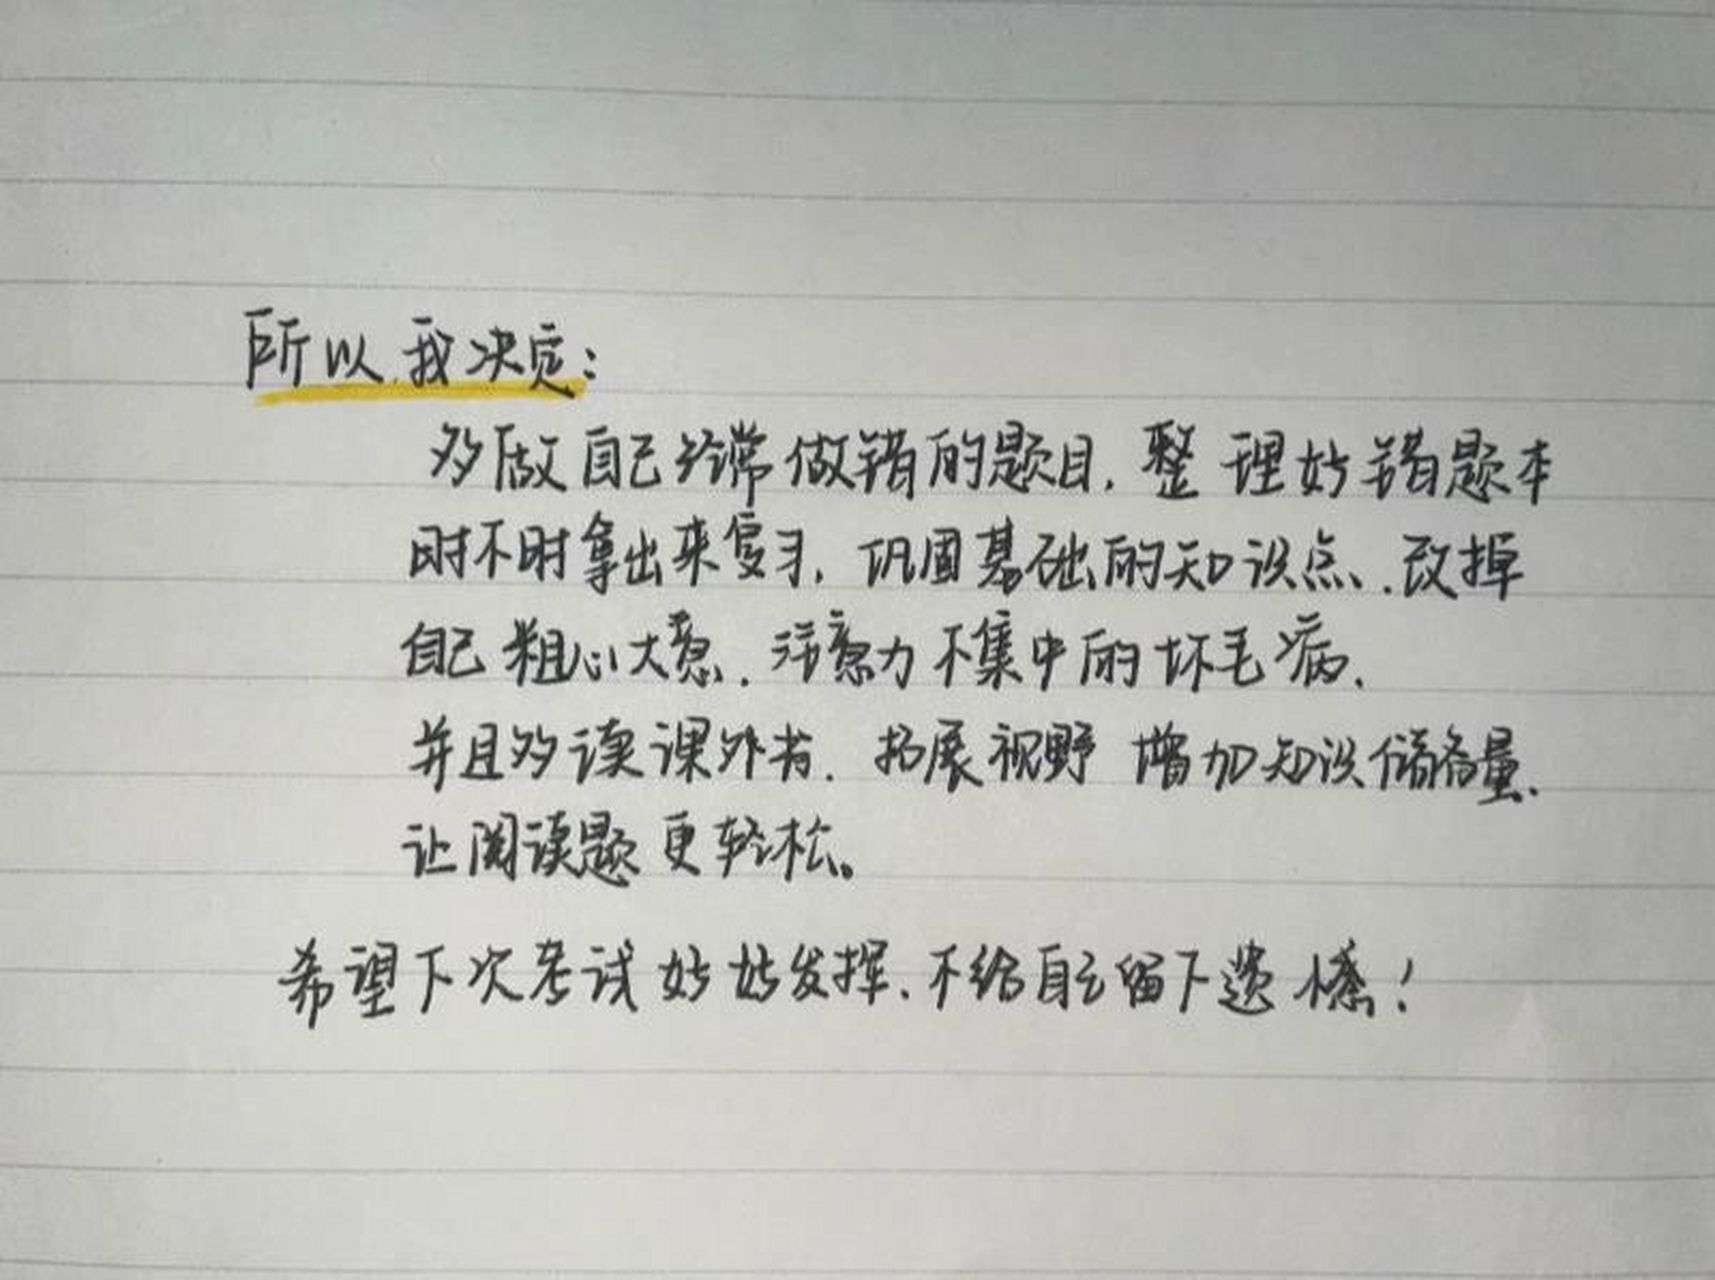 所以,我决定:
多做自己经常做错的题目,整理好错题本
时不时拿出来复习,巩固基础的知识点、改掉
自己粗心大意,注意力不集中的坏毛病,
并且多读课外书,拓展视野 增加知识储备量,
让阅读题更轻松。
希望下次考试好好发挥,不给自己留下遗憾!